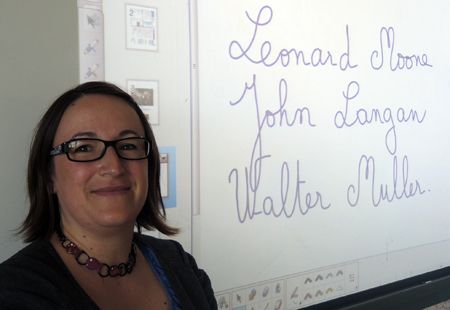 Leonard Moone
John Langan
Walter Muller.